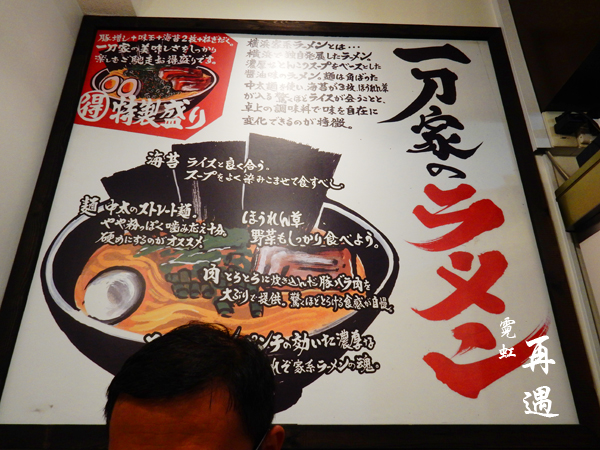 豚増し+味玉+海苔2枚+ねぎだく。
一刀家の美味しさをしっかり
楽しむご馳走お得盛りです。
得 特製盛り
横浜家系ラーメンとは…
横浜で独自発展したラーメン。
濃厚なとんこつスープをベースとした
醤油味のラーメン。麺は角ばった
中太麺を使い海苔が3枚、ほうれん草
が入る。驚くほどライスが合うことと、
卓上の調味料で味を自在に
変化できるのが特徴。
一刀家のラーメン
海苔 ライスと良く合う。
スープをよく染みこませて食すべし
麺 中太のストレート麺。
やや粉っぽく噛みごたえ十分。
硬めにするのがオススメ
ほうれん草
野菜もしっかり食べよう。
肉 とろとろに炊き込んだ豚バラ肉を
大ぶりで提供。驚くほどとろける食感が自慢。
パンチの効いた濃厚な
これぞ家系ラーメンの魂。
霓虹
再遇